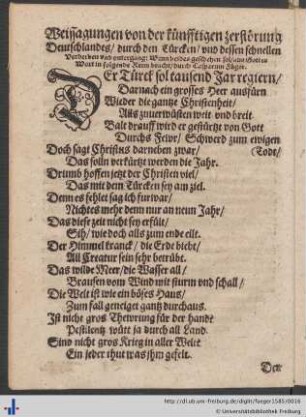 Weissagungen von der künfftigen zerstörung
Deutschlandes/ durch den Türcken/ vnd dessen schnellen
Verderben vnd vntergang: Wenn beides geschehen sol/ aus Gottes
Wort in folgende Reim bracht/ durch Casparum Füger.
Der Türck sol tausend Jar regiern/
Darnach ein grosses Heer ausfürn
Wieder die gantze Christenheit/
Alls zuuerwüsten weit vnd breit.
Balt drauff wird er gestürtzt von Gott
Durchs Fewr/ Schwerd zum ewigen
Todt/
Doch sagt Christus darneben zwar/
Das solln verkürtzt werden die Jar.
Drumb hoffen jetzt der Christen viel/
Das mit dem Türcken sey am ziel.
Denn es fehlet sag ich fürwar/
Nichtes mehr denn nur an neun Jahr/
Das diese zeit nicht sey erfült/
Sih/ wie doch alls zum ende eilt.
Der Himmel kranckt/ die Erde biebt/
All Creatur sein sehr betrübt.
Das wilde Meer/ die Wasser all/
Brausen vom Wind mit sturm vnd schall/
Die Welt ist wie ein böses Haus/
Zum fall geneiget gantz durchaus.
Ist nicht gros Thewrung für der handt
Pestilentz wüt ja durch all Land.
Sind nicht gros Krieg in aller Welt
Ein jeder thut was jhm gefelt.
Der
http://dl.ub.uni-freiburg.de/diglit/fueger1585/0016
© Universitätsbibliothek Freiburg